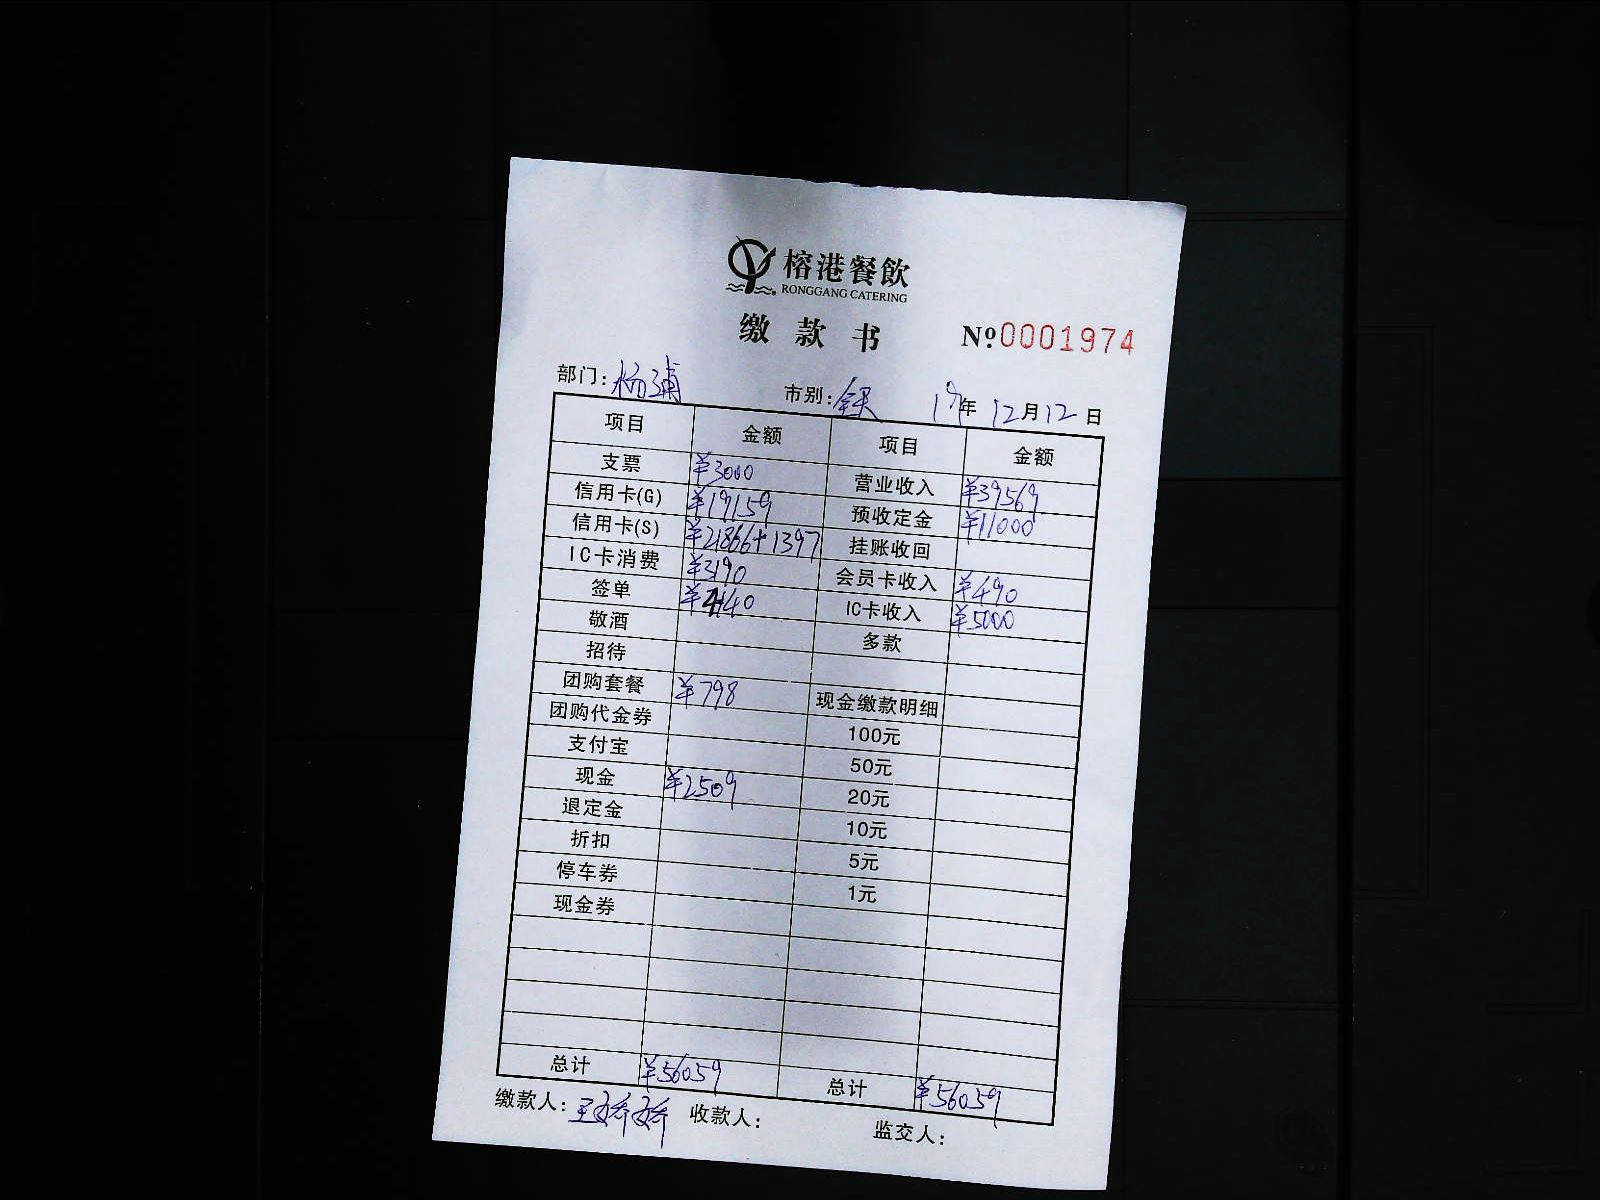 榕港餐飲
RONGGANG CATERING
缴款书 №0001974
部门:杨浦 市别:全天 19年12月12日
项目 金额 项目 金额
支票 ¥3000 营业收入 ¥39569
信用卡(G) ¥19159 预收定金 ¥11000
信用卡(S) ¥21866+1397 挂账收回
IC卡消费 ¥3190 会员卡收入 ¥490
签单 ¥4140 IC卡收入 ¥5000
敬酒 多款
招待
团购套餐 ¥798 现金缴款明细
团购代金券 100元
支付宝 50元
现金 ¥2509 20元
退定金 10元
折扣 5元
停车券 1元
现金券
总计 ¥56059 总计 ¥56059
缴款人:王娇娇 收款人: 监交人: